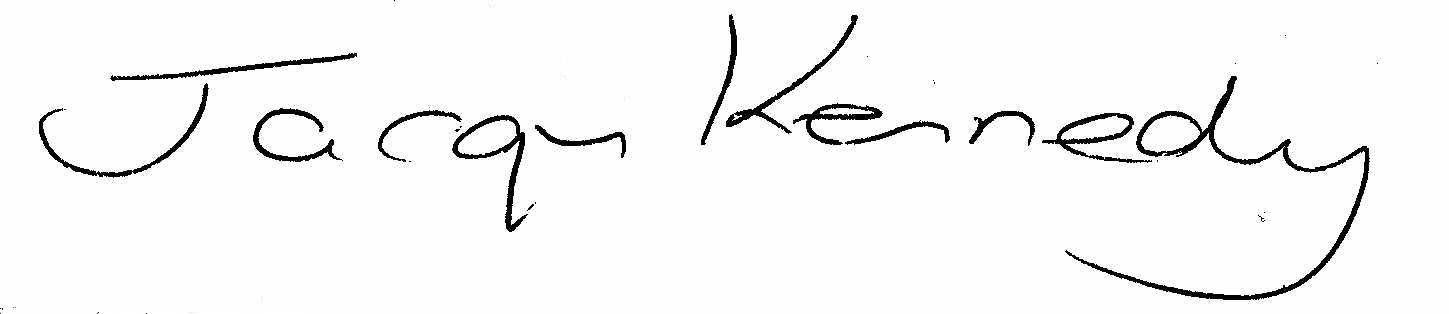 Jacqui Kennedy